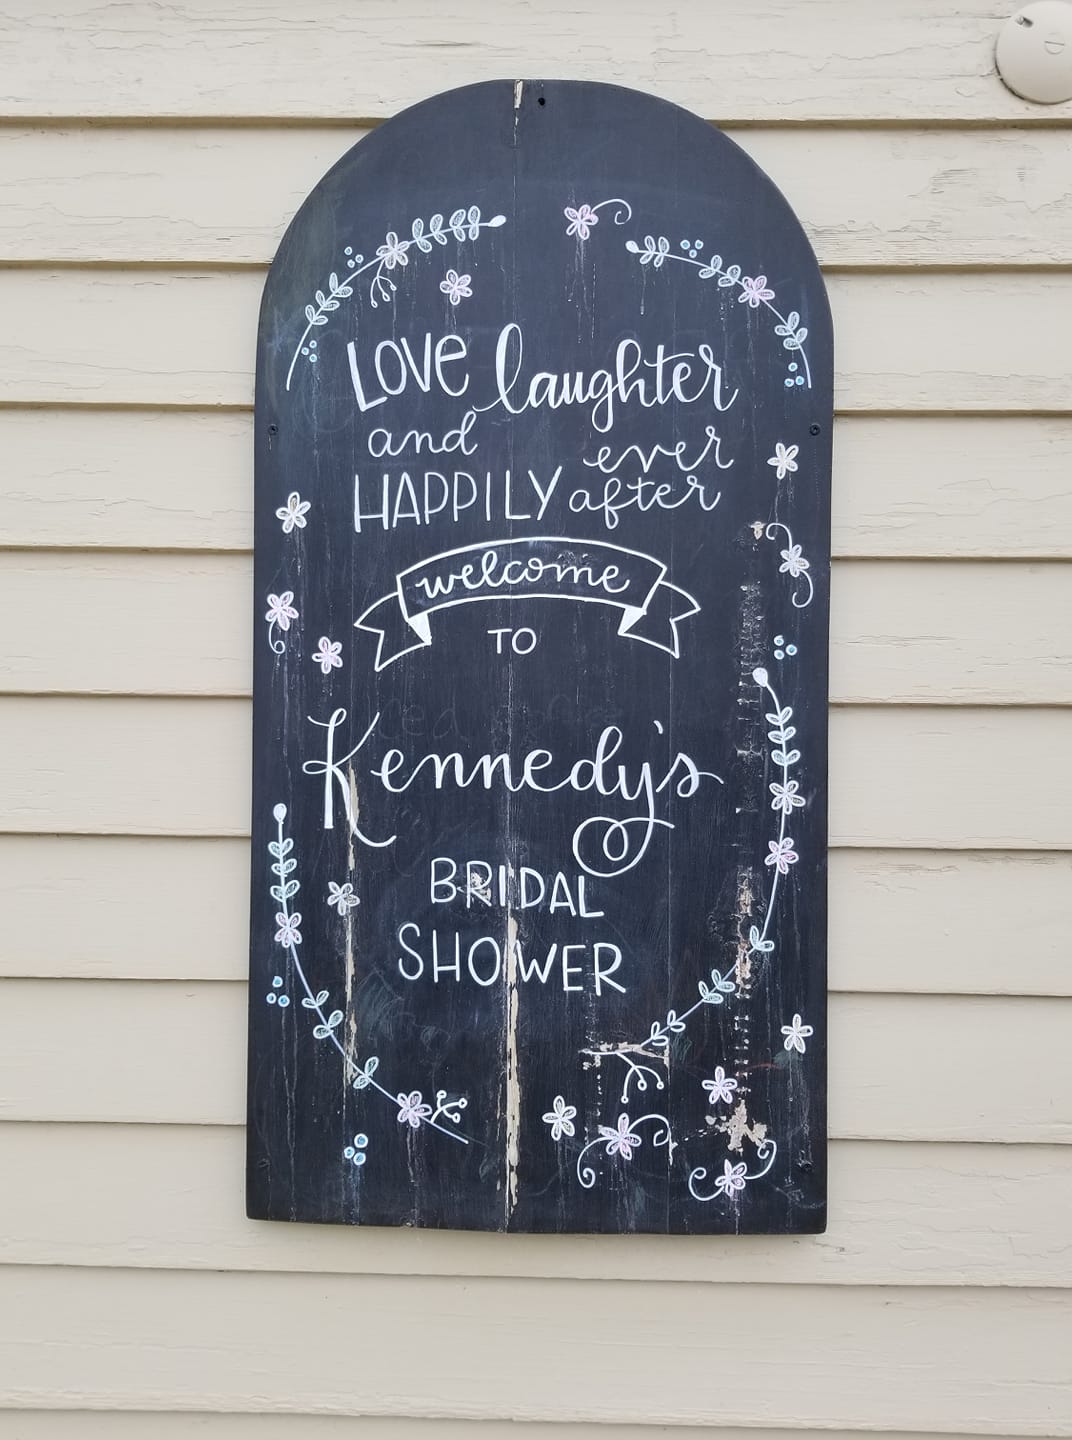 LOVE laughter
and
HAPPILY ever after
welcome
TO
Kennedy's
BRIDAL
SHOWER